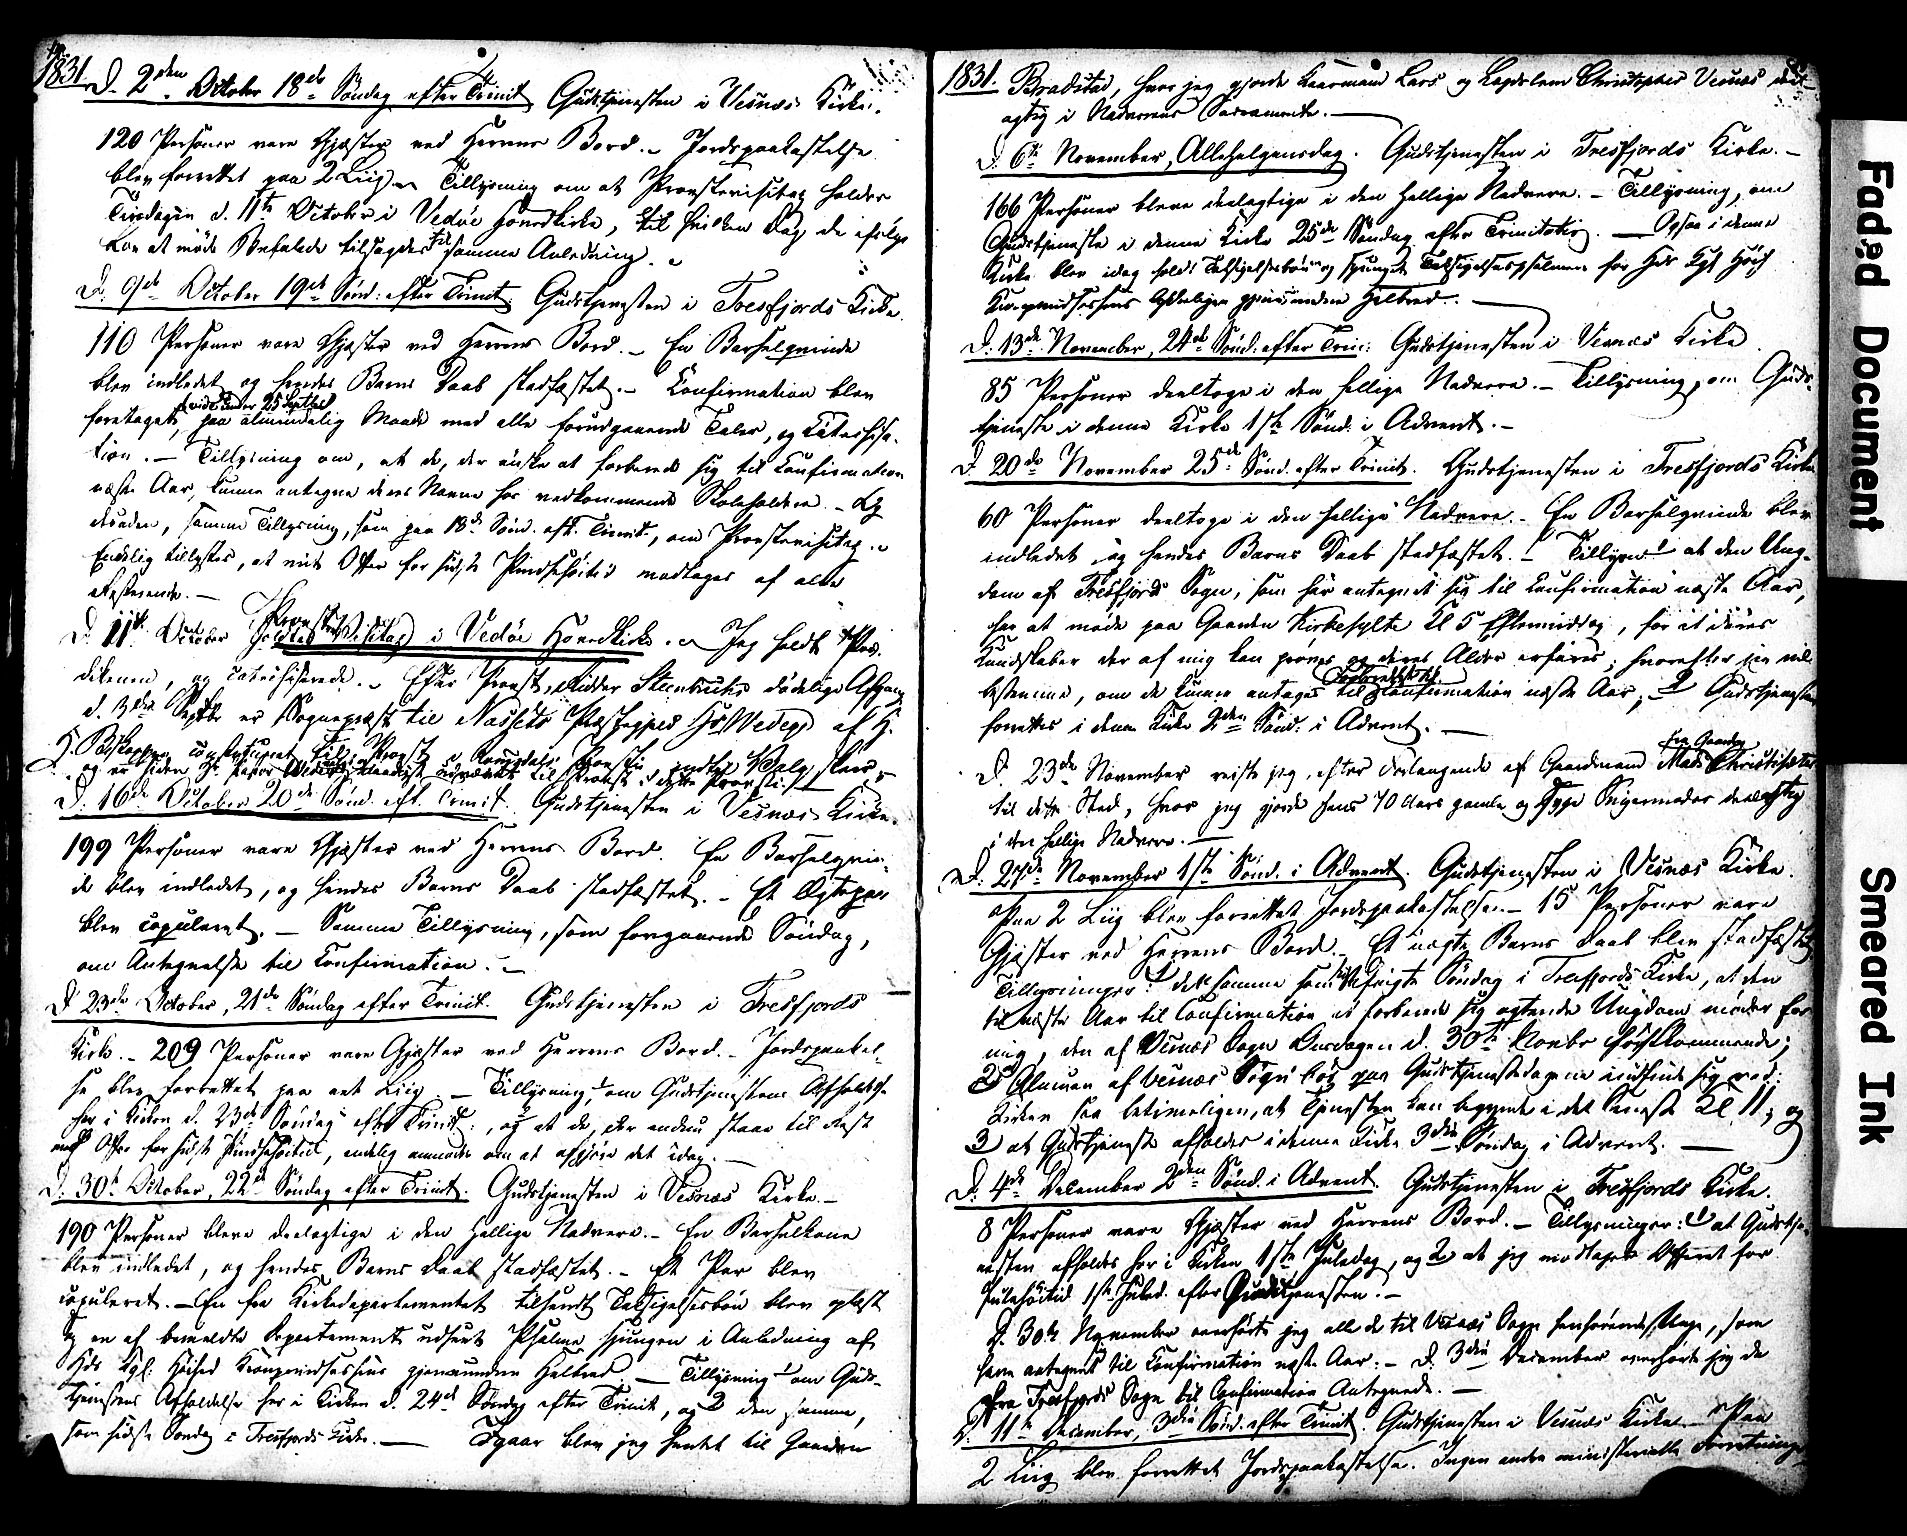 1831. D. 2den October 18de Søndag efter Trinit. Gudstjenesten i Vesnæs Kirke.
120 Personer vare Gjæster ved Herrens Bord. - Jordspaakastelse
blev forrettet paa 2 Liig. - Tillysning om at Provstevisitag holdes
Tirsdagen d. 11te October i Vedøe Hovedkirke, til hvilken Dag de ifølge
Lov at møde Befalede tilsagdes til samme Anledning. -
D. 9de October 19de Sønd: efter Trinit. Gudstjenesten i Tresfjords Kirke.
110 Personer vare Gjæster ved Herrens Bord. - En Barselqvinde
blev indledet og hendes Barns Daab stadfæstet. - Confirmation blev
foretaget, paa almindelig Maade med alle forudgaaende Taler, og Catechisa-
tion. - Tillysning om, at de, der ønske at forberede sig til Confirmation
næste Aar, kunne antegne deres Navne hos vedkommende Skoleholdere. - Og
desuden, samme Tillysning, som paa 18de Sønd. eft. Trinit., om Provstevisitag. -
Endelig tillystes, at mit Offer for sidste Pindsehøitid modtages af alle
resterende. -
D. 11te October holdtes Provste-Visitag i Vedøe Hovedkirke. - Jeg holdt Præ-
dikenen, og catechiserede. - Efter Provst, Ridder Steenbuchs dødelige Afgang
d. 3die Septbr er Sognepræst til Næssets Præstegjeld Hr Wedege af H.
H. Biskoppen constitueret til Provst i Romsdals Provsti indtil Valg skeer, -
og er siden Hr. Pastor Wedege udnævnt til Provst i dette Provsti. -
D. 16de October 20de Sønd. eft. Trinit. Gudstjenesten i Vesnæs Kirke.
199 Personer vare Gjæster ved Herrens Bord. En Barselqvin-
de blev indledet, og hendes Barns Daab stadfæstet. - Et Ægtepar
blev copuleret. - Samme Tillysning, som foregaaende Søndag,
om Antegnelse til Confirmation. -
D. 23de October, 21de Søndag efter Trinit. Gudstjenesten i Tresfjords
Kirke. - 209 Personer vare Gjæster ved Herrens Bord. - Jordspaakastel-
se blev forrettet paa eet Liig. - Tillysning, om Gudstjenestens Afholdelse
her i Kirken d. 23de Søndag efter Trinit:, og at de, der endnu staae til Rest
med Offer for sidste Pindsehøitid, endelig anmodes om at afgjøre det idag. -
D. 30te October, 22de Søndag efter Trinit. Gudstjenesten i Vesnæs Kirke. -
190 Personer bleve deelagtige i den Hellige Nadvere. - En Barselkone
blev indledet, og hendes Barns Daab stadfæstet. - Et Par blev
copuleret. - En fra Kirkedepartementet tilsendt Taksigelsesbøn blev oplæst
og en af bemeldte Departement udsendt Psalme sjungen i Anledning af
Hds Kgl. Høihed Kronprindsessens gjenvundne Helbred. - Tillysning 1 om Guds-
tjenestens Afholdelse her i Kirken d. 24de Søndag efter Trinit, og 2 den samme,
som sidste Søndag i Tresfjords Kirke. - Igaar blev jeg hentet til Gaarden
1831. Bradstad, hvor jeg gjorde Kaarmand Lars og Lægdslem Christopher Vesnæs deel-
agtig i Nadverens Sacramente. -
D. 6te November, Allehelgensdag. Gudstjenesten i Tresfjords Kirke. -
166 Personer bleve deelagtige i den hellige Nadvere. - Tillysning, om
Gudstjeneste i denne Kirke 25de Søndag efter Trinitatis. - Ogsaa i denne
Kirke blev idag holdt Taksigelsesbøn og sjunget Taksigelsespsalmen for Hds Kgl Høih
Kronprindsessens lykkeligen gjenvundne Helbred. -
D: 13de November, 24de Sønd: efter Trin: Gudstjenesten i Vesnæs Kirke
85 Personer deeltoge i den hellige Nadvere. - Tillysning, om Guds-
tjeneste i denne Kirke 1ste Sønd: i Advent. -
D. 20de November 25de Sønd. efter Trinit. Gudstjenesten i Tresfjords Kirke
60 Personer deeltoge i den hellige Nadvere. - En Barselqvinde blev
indledet, og hendes Barns Daab stadfæstet. - Tillysn: 1 at den Ung-
dom af Tresfjords Sogn, som har antegnet sig til Confirmation næste Aar,
har at møde paa Gaarden Kirkesylte Kl 5 Eftermiddag, for at deres
Kundskaber der af mig kan prøves og deres Alder erfares; hvorefter jeg vil
bestemme, om de kunne antages til Forberedelse til Confirmation næste Aar; - 2 Gudstjeneste
forrettes i denne Kirke 2den Sønd: i Advent. -
D. 23de November reiste jeg, efter Forlangende af Gaardmand Mads Christophersen
til dette Sted, hvor jeg gjorde hans 70 Aars gamle og syge Svigermoder deelagtig
i den hellige Nadvere. -
D. 27de November 1ste Sønd. i Advent. Gudstjenesten i Vesnæs Kirke.
Paa 2 Liig blev forrettet Jordspaakastelse. - 15 Personer vare
Gjæster ved Herrens Bord. - Et uægte Barns Daab blev stadfæstet
Tillysninger: 1 det samme som forrige Søndag i Tresfjords Kirke, at den
til næste Aar til Confirmation at forberede sig agtende Ungdom møder for
mig, den af Vesnæs Sogn Onsdagen d. 30te Novbr førstkommende;
2 Almuen af Vesnæs Sogn bør paa Gudstjenestedagene indfinde sig ved
Kirken saa betimeligen, at Tjenesten kan begynde i det seneste Kl 11; og
3 at Gudstjeneste afholdes i denne Kirke 3die Søndag i Advent. -
D. 4de December 2den Sønd. i Advent. Gudstjenesten i Tresfjords Kirke.
8 Personer vare Gjæster ved Herrens Bord. - Tillysninger: 1 at Gudstje-
nesten afholdes her i Kirken 1ste Juledag, og 2 at jeg modtager Offeret for
Julehøitid 1ste Juled. efter Gudstjenesten. -
D. 30te November overhørte jeg alle de til Vesnæs Sogn henhørende Unge, som
have antegnet til Confirmation næste Aar: - D. 3die December overhørte jeg de
fra Tresfjords Sogn til Confirmation Antegnede. -
D. 11te December, 3die Sønd. efter Trinit. Gudstjenesten i Vesnæs Kirke. - Paa
2 Liig blev forrettet Jordspaakastelse. Ingen andre ministerielle Forretninger
Faded Document
Smeared Ink